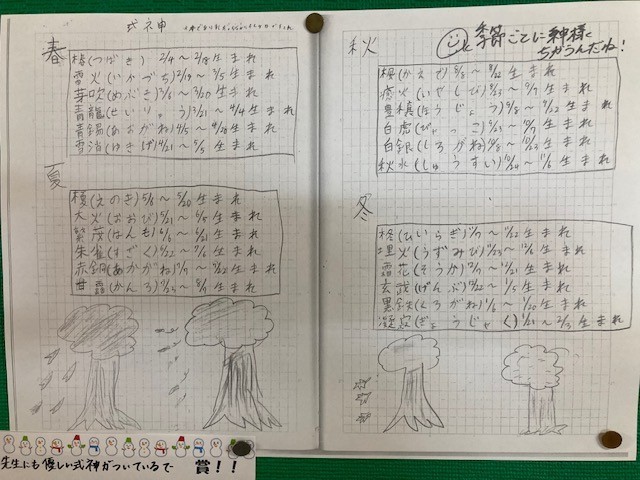 式神
春
椿(つばき) 2/4～2/18生まれ
雷火(いかづち)2/19～3/5生まれ
芽吹(めぶき)3/6～3/20生まれ
青龍(せいりゅう)3/21～4/4生まれ
青錫(あおがね)4/5～4/20生まれ
雪消(ゆきげ)4/21～5/5生まれ
夏
榎(えのき)5/6～5/20生まれ
大火(おおび)5/21～6/5生まれ
繁茂(はんも)6/6～6/21生まれ
朱雀(すざく)6/22～7/6生まれ
赤銅(あかがね)7/7～7/22生まれ
甘露(かんろ)7/23～8/7生まれ
先生にも優しい式神がついているで賞！！
季節ごとに神様が
ちがうんだね！
秋
楓(かえで)8/8～8/22生まれ
癒火(いやしび)8/23～9/7生まれ
豊穣(ほうじょう)9/8～9/22生まれ
白虎(びゃっこ)9/23～10/7生まれ
白銀(しろがね)10/8～10/23生まれ
秋水(しゅうすい)10/24～11/6生まれ
冬
柊(ひいらぎ)11/7～11/22生まれ
埋火(うずみび)11/23～12/6生まれ
霜花(そうか)12/7～12/21生まれ
玄武(げんぶ)12/22～1/5生まれ
黒鉄(くろがね)1/6～1/20生まれ
(ぎょうじゃく)1/21～2/3生まれ